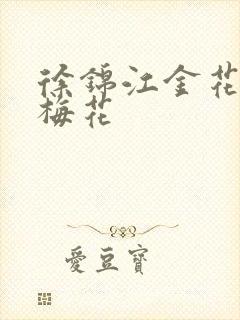 徐錦江金花
梅花
愛豆寶